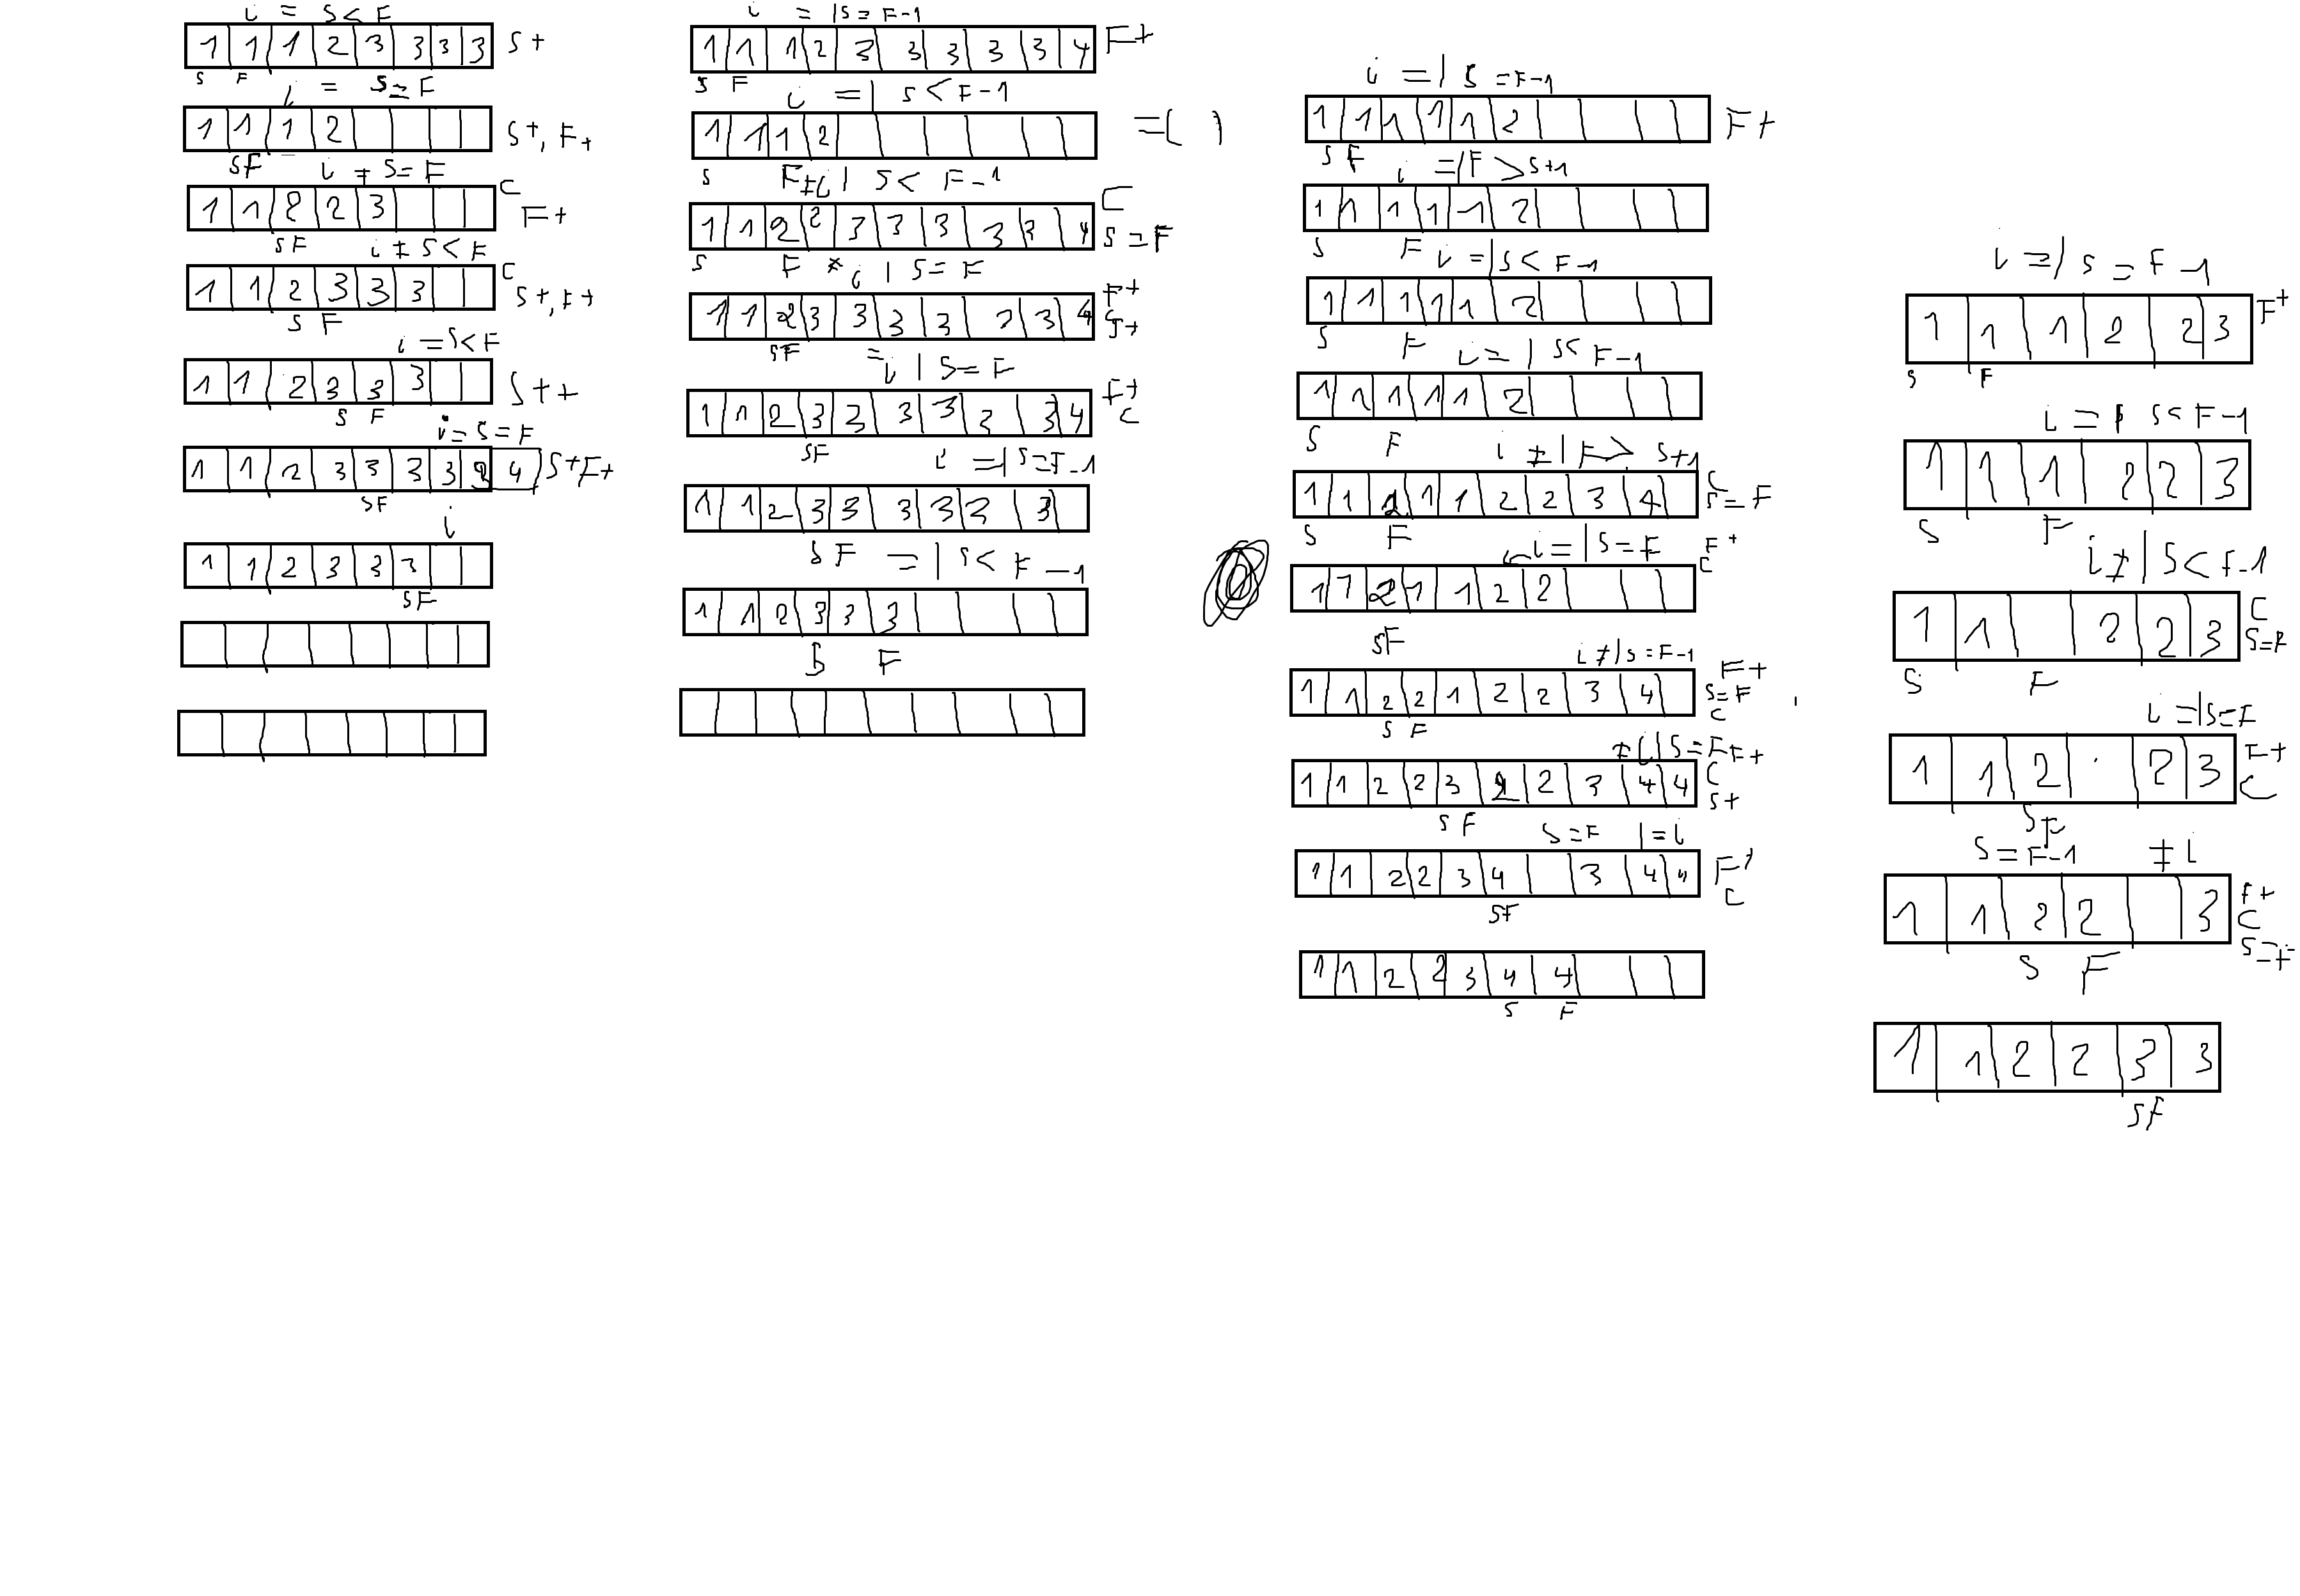 i = S < F
1 1 1 2 3 3 3 3 S+
S F
i = S = F
1 1 1 2 S+, F+
SF
i ≠ S = F
1 1 2 2 3 C F+
SF
i ≠ S < F
1 1 2 3 3 3 C S+, F+
S F
i = S < F
1 1 2 3 3 3 S++
S F
i = S = F
1 1 2 3 3 3 3 3 4 S+F+
SF
i
1 1 2 3 3 3
SF
i = | S = F-1
1 1 1 2 3 3 3 3 3 4 F+
S F
i = | S < F-1
1 1 1 2 = ( )
S F ≠ i | S < F-1
1 1 2 2 3 3 3 3 3 4 C S = F
S F ≠ i | S = F
1 1 2 3 3 3 3 3 3 4 F+ C S+
SF = i | S = F
1 1 2 3 3 3 3 3 3 4 F+ C
SF i = | S = F-1
1 1 2 3 3 3 3 3 3
S F = | S < F-1
1 1 2 3 3 3
S F
i = | S = F-1
1 1 1 1 1 2 F+
S F
i = | F > S+1
1 1 1 1 1 2
S F
i = | S < F-1
1 1 1 1 1 2
S F
i = | S < F-1
1 1 1 1 1 2
S F
i ≠ | F > S+1
1 1 2 1 1 2 2 3 4 C S = F
S F
i = | S = F F+ C
1 1 2 1 1 2 2
SF
i ≠ | S = F-1
1 1 2 2 1 2 2 3 4 F+ S = F C
S F
≠ i | S = F F+
1 1 2 2 3 2 2 3 4 4 C S+
S F
S = F | = i
1 1 2 2 3 4 3 4 4 F+ C
SF
1 1 2 2 3 4 4
S F
i = | S = F-1
1 1 1 2 2 3 F+
S F
i = | S < F-1
1 1 1 2 2 3
S F
i ≠ | S < F-1
1 1 2 2 3 C S=F
S F
i = | S = F
1 1 2 2 3 F+ C
SF
S = F-1 ≠ i
1 1 2 2 3 F+ C S=F
S F
1 1 2 2 3 3
SF